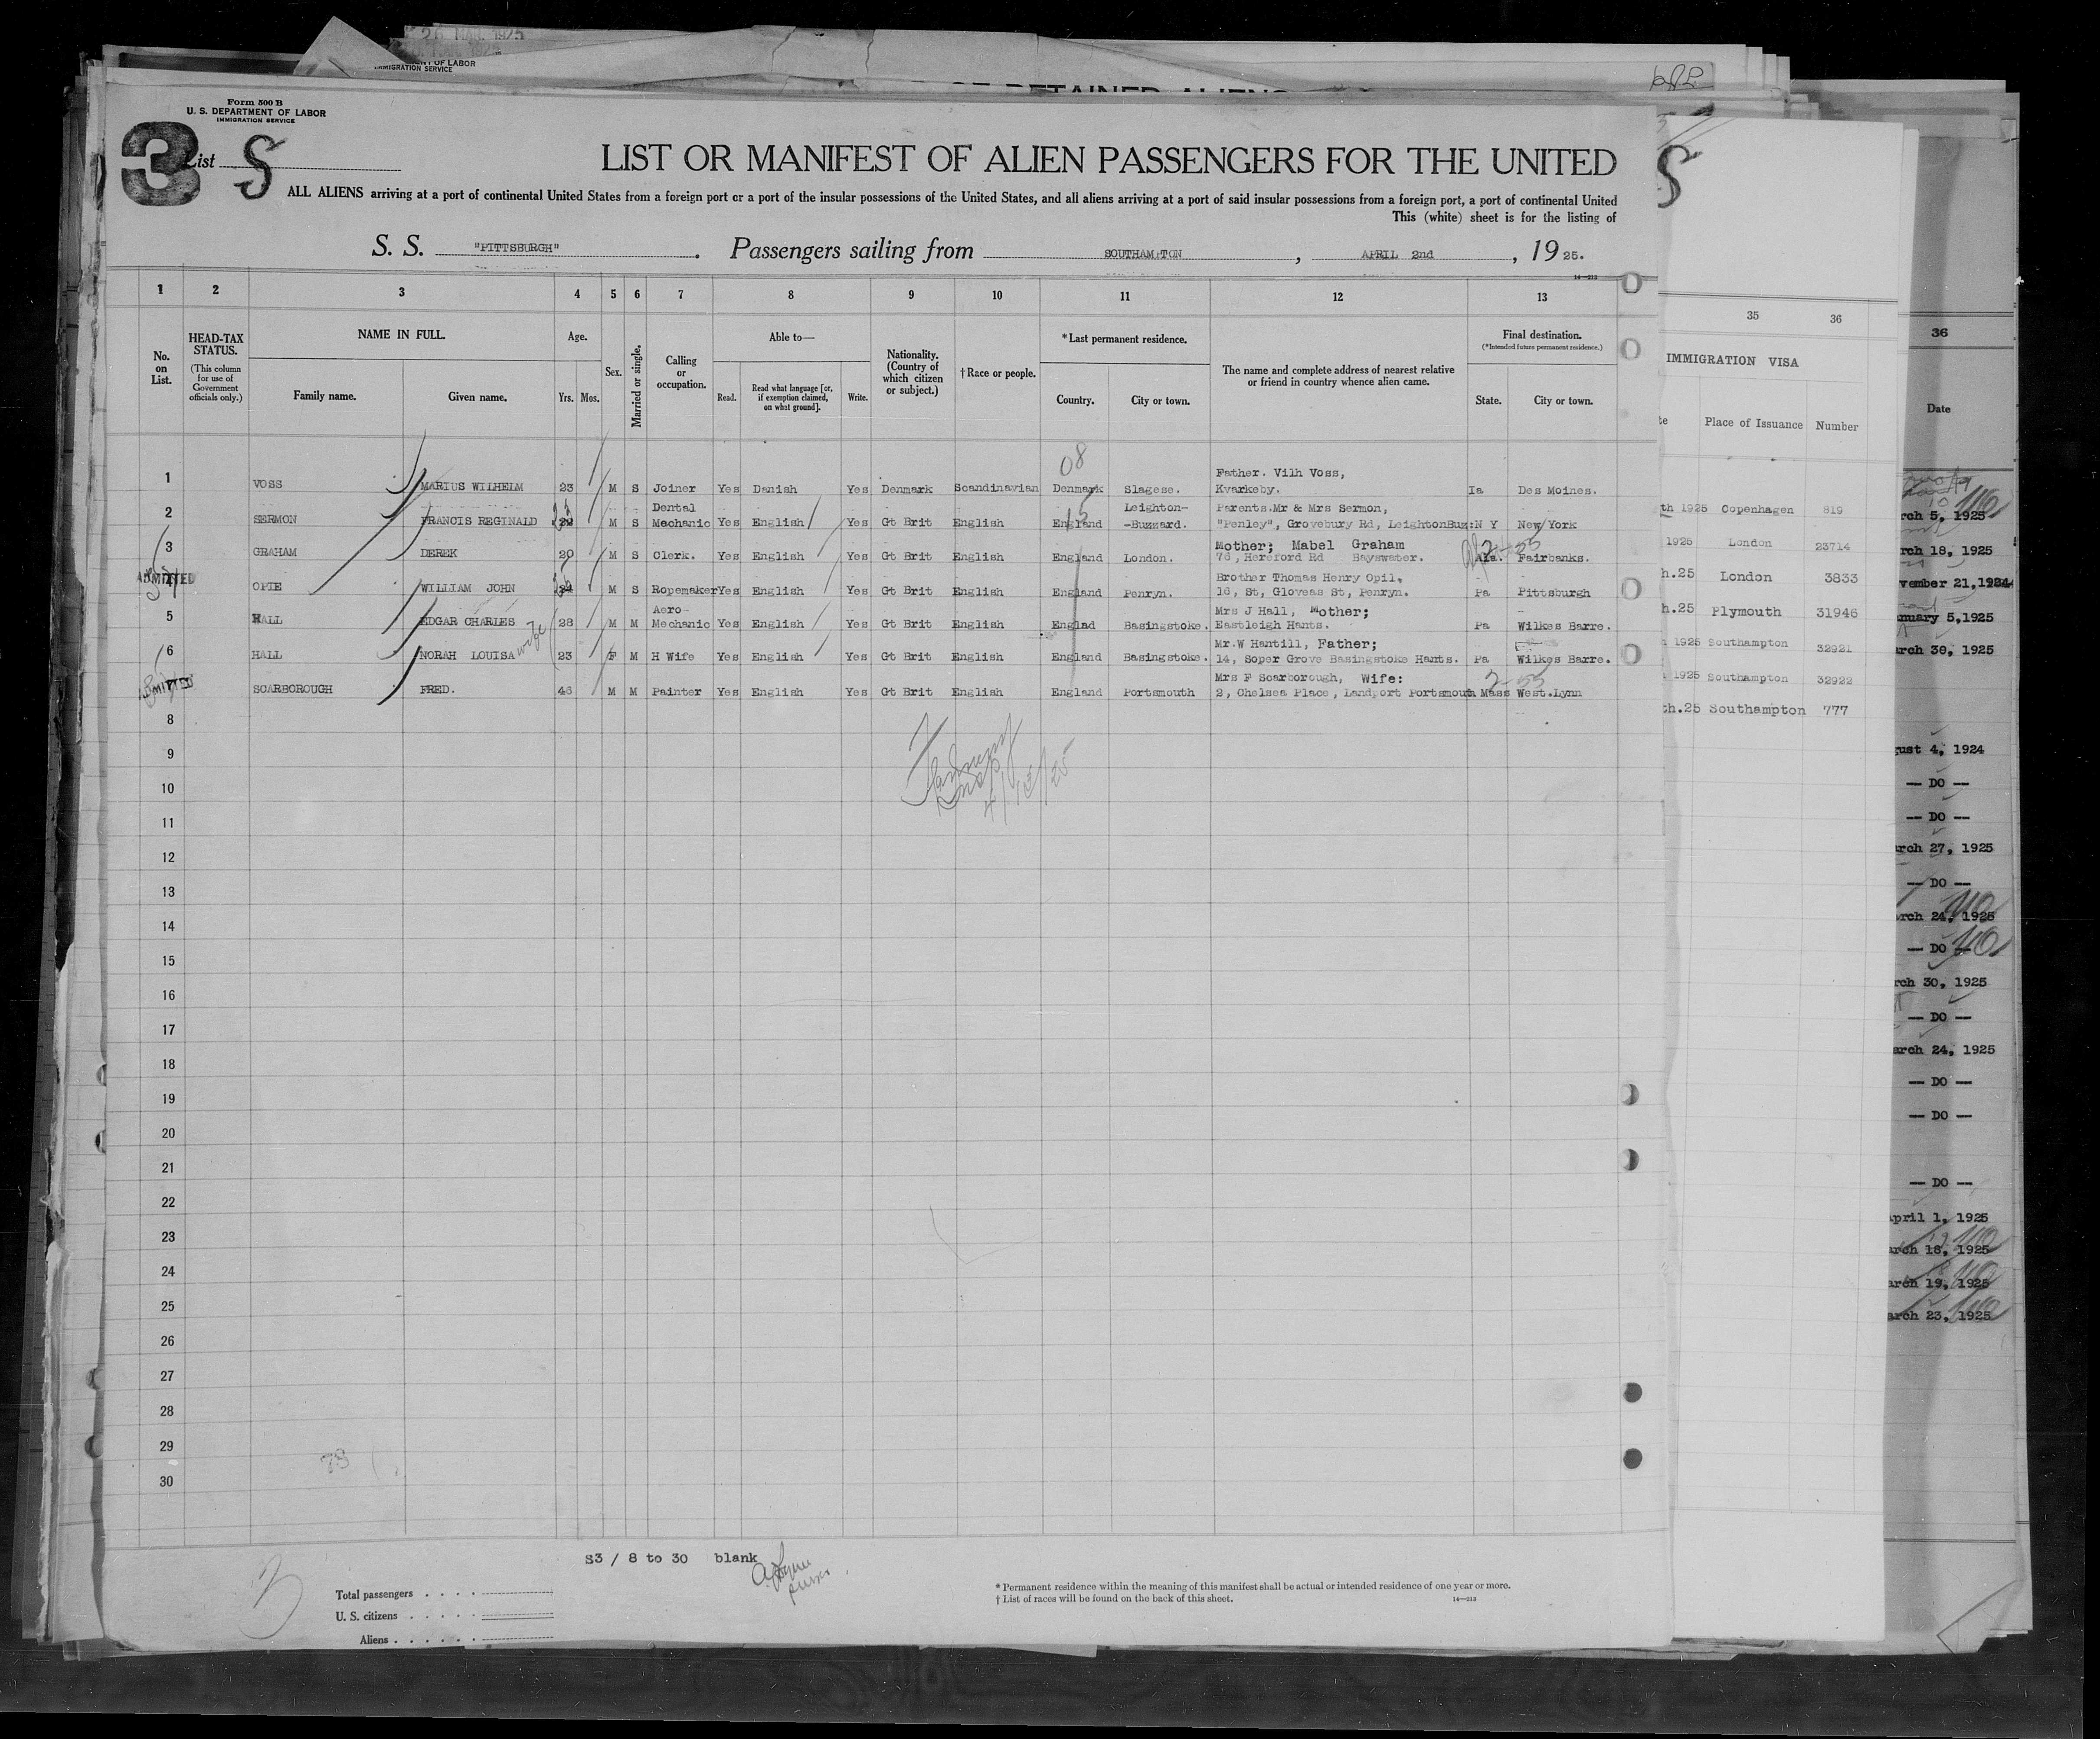 26 MAR 1925
OF LABOR
IMMIGRATION SERVICE
Form 500 B
U. S. DEPARTMENT OF LABOR
IMMIGRATION SERVICE
3
List S
LIST OR MANIFEST OF ALIEN PASSENGERS FOR THE UNITED
ALL ALIENS arriving at a port of continental United States from a foreign port or a port of the insular possessions of the United States, and all aliens arriving at a port of said insular possessions from a foreign port, a port of continental United
This (white) sheet is for the listing of
S. S. "PITTSBURGH". Passengers sailing from SOUTHAMPTON, APRIL 2nd, 19 25.
14—212
1 2 3 4 5 6 7 8 9 10 11 12 13
No. on List.
HEAD-TAX STATUS.
(This column for use of Government officials only.)
NAME IN FULL.
Family name. Given name.
Age.
Yrs. Mos.
Sex.
Married or single.
Calling or occupation.
Able to—
Read. Read what language [or, if exemption claimed, on what ground]. Write.
Nationality. (Country of which citizen or subject.)
†Race or people.
*Last permanent residence.
Country. City or town.
The name and complete address of nearest relative or friend in country whence alien came.
Final destination.
(*Intended future permanent residence.)
State. City or town.
08
1 VOSS MARIUS WILHELM 23 M S Joiner Yes Danish Yes Denmark Scandinavian Denmark Slagese. Father. Vilh Voss, Kvarkeby. Ia Des Moines.
2 SERMON FRANCIS REGINALD M S Dental Mechanic Yes English Yes Gt Brit English England Leighton--Buzzard. Parents.Mr & Mrs Sermon, "Penley", Grovebury Rd, LeightonBuz: N Y New York
3 GRAHAM DEREK 20 M S Clerk. Yes English Yes Gt Brit English England London. Mother; Mabel Graham 76, Hereford Rd Bayswater. Ala. Fairbanks.
ADMITTED
4 OPIE WILLIAM JOHN M S Ropemaker Yes English Yes Gt Brit English England Penryn. Brother Thomas Henry Opil, 16, St, Gloveas St, Penryn. Pa Pittsburgh
5 HALL EDGAR CHARLES 28 M M Aero-Mechanic Yes English Yes Gt Brit English Englad Basingstoke. Mrs J Hall, Mother; Eastleigh Hants. Pa Wilkes Barre.
6 HALL NORAH LOUISA wife 23 F M H Wife Yes English Yes Gt Brit English England Basingstoke. Mr.W Hantill, Father; 14, Soper Grove Basingstoke Hants. Pa Wilkes Barre.
ADMITTED
SCARBOROUGH FRED. 46 M M Painter Yes English Yes Gt Brit English England Portsmouth Mrs F Scarborough, Wife: 2, Chelsea Place, Landport Portsmouth Mass West.Lynn
8
9
10
4/13/25
11
12
13
14
15
16
17
18
19
20
21
22
23
24
25
26
27
28
29
30
S3 / 8 to 30 blank
Total passengers
U. S. citizens
Aliens
* Permanent residence within the meaning of this manifest shall be actual or intended residence of one year or more.
† List of races will be found on the back of this sheet.
14—212
S
35 36
IMMIGRATION VISA
Place of Issuance Number
th 1925 Copenhagen 819
1925 London 23714
h.25 London 3833
h.25 Plymouth 31946
1925 Southampton 32921
1925 Southampton 32922
ch.25 Southampton 777
36
Date
rch 5, 1925
rch 18, 1925
vember 21,1924
nuary 5,1925
arch 30, 1925
gust 4, 1924
— DO —
— DO —
arch 27, 1925
— DO —
arch 24, 1925
— DO —
rch 30, 1925
— DO —
arch 24, 1925
— DO —
— DO —
— DO —
April 1, 1925
arch 18, 1925
arch 19, 1925
arch 23, 1925